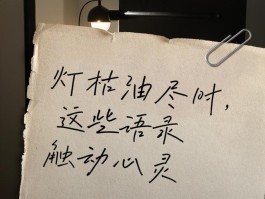 灯枯油尽时，
这些语录
触动心灵